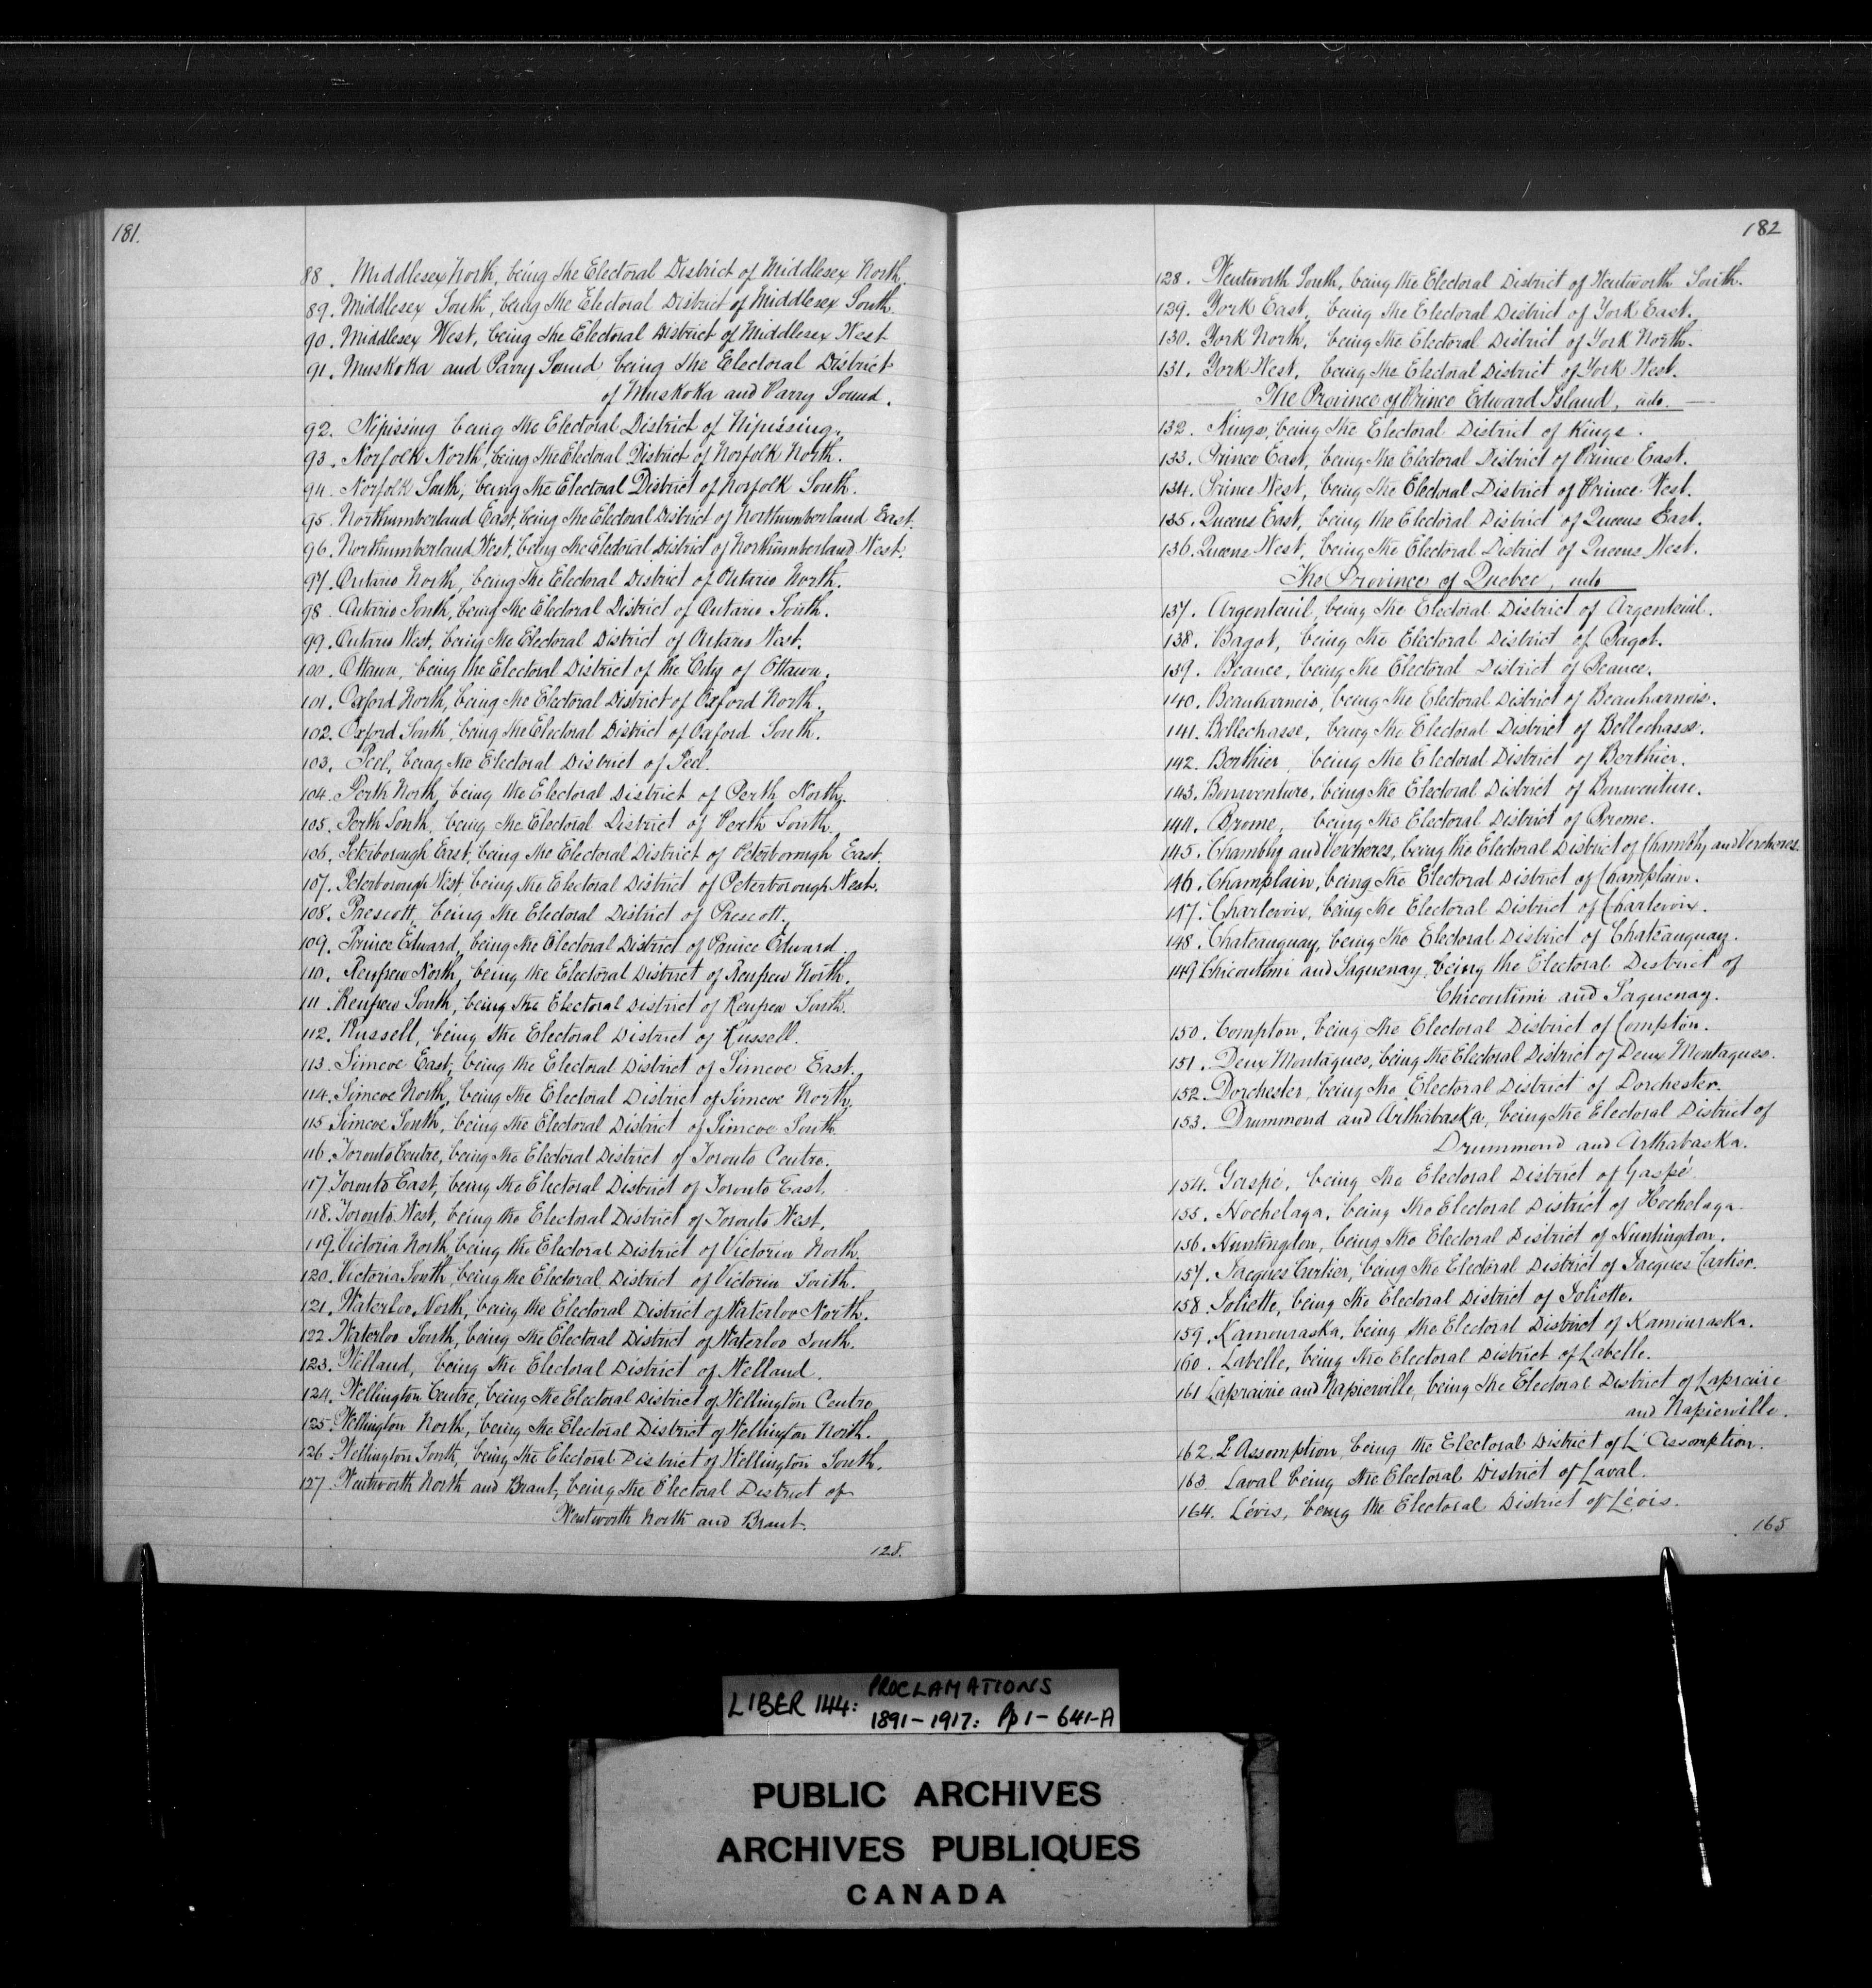 181.
88. Middlesex North, being the Electoral District of Middlesex North.
89. Middlesex South, being the Electoral District of Middlesex South.
90. Middlesex West, being the Electoral District of Middlesex West
91. Muskoka and Parry Sound being the Electoral District
of Muskoka and Parry Sound.
92. Nipissing being the Electoral District of Nipissing.
93. Norfolk North, being the Electoral District of Norfolk North.
94. Norfolk South, being the Electoral District of Norfolk South.
95. Northumberland East, being the Electoral District of Northumberland East.
96. Northumberland West, being the Electoral District of Northumberland West.
97. Ontario North, being the Electoral District of Ontario North.
98. Ontario South, being the Electoral District of Ontario South.
99. Ontario West, being the Electoral District of Ontario West.
100. Ottawa, being the Electoral District of the City of Ottawa.
101. Oxford North, being the Electoral District of Oxford North.
102. Oxford South, being the Electoral District of Oxford South.
103. Peel, being the Electoral District of Peel.
104. Perth North, being the Electoral District of Perth North.
105. Perth South, being the Electoral District of Perth South.
106. Peterborough East, being the Electoral District of Peterborough East.
107. Peterborough West, being the Electoral District of Peterborough West.
108. Prescott, being the Electoral District of Prescott.
109. Prince Edward, being the Electoral District of Prince Edward.
110. Renfrew North, being the Electoral District of Renfrew North.
111. Renfrew South, being the Electoral District of Renfrew South.
112. Russell, being the Electoral District of Russell.
113. Simcoe East, being the Electoral District of Simcoe East.
114. Simcoe North, being the Electoral District of Simcoe North.
115 Simcoe South, being the Electoral District of Simcoe South.
116. Toronto Centre, being the Electoral District of Toronto Centre.
117 Toronto East, being the Electoral District of Toronto East.
118. Toronto West, being the Electoral District of Toronto West.
119. Victoria North, being the Electoral District of Victoria North.
120. Victoria South, being the Electoral District of Victoria South.
121. Waterloo North, being the Electoral District of Waterloo North.
122. Waterloo South, being the Electoral District of Waterloo South.
123. Welland, being the Electoral District of Welland.
124. Wellington Centre, being the Electoral District of Wellington Centre
125. Wellington North, being the Electoral District of Wellington North.
126. Wellington South, being the Electoral District of Wellington South.
127 Wentworth North and Brant, being the Electoral District of
Wentworth North and Brant.
128.
182
128. Wentworth South, being the Electoral District of Wentworth South.
129. York East, being the Electoral District of York East.
130. York North, being the Electoral District of York North.
131. York West, being the Electoral District of York West.
The Province of Prince Edward Island, into.
132. Kings, being the Electoral District of Kings.
133. Prince East, being the Electoral District of Prince East.
134. Prince West, being the Electoral District of Prince West.
135. Queens East, being the Electoral District of Queens East.
136. Queens West, being the Electoral District of Queens West.
The Province of Quebec, into
137. Argenteuil, being the Electoral District of Argenteuil.
138. Bagot, being the Electoral District of Bagot.
139. Beauce, being the Electoral District of Beauce.
140. Beauharnois, being the Electoral District of Beauharnois.
141. Bellechasse, being the Electoral District of Bellechasse.
142. Berthier, being the Electoral District of Berthier.
143. Bonaventure, being the Electoral District of Bonaventure.
144. Brome, being the Electoral District of Brome.
145. Chambly and Vercheres, being the Electoral District of Chambly and Vercheres.
146. Champlain, being the Electoral District of Champlain.
147. Charlevoix, being the Electoral District of Charlevoix.
148. Chateauguay, being the Electoral District of Chateauguay.
149 Chicoutimi and Saguenay, being the Electoral District of
Chicoutimi and Saguenay.
150. Compton, being the Electoral District of Compton.
151. Deux Montagnes, being the Electoral District of Deux Montagnes.
152. Dorchester, being the Electoral District of Dorchester.
153. Drummond and Arthabaska, being the Electoral District of
Drummond and Arthabaska.
154. Gaspé, being the Electoral District of Gaspé.
155. Hochelaga, being the Electoral District of Hochelaga.
156. Huntingdon, being the Electoral District of Huntingdon.
157. Jacques Cartier, being the Electoral District of Jacques Cartier.
158. Joliette, being the Electoral District of Joliette.
159. Kamouraska, being the Electoral District of Kamouraska.
160. Labelle, being the Electoral District of Labelle.
161 Laprairie and Napierville, being the Electoral District of Laprairie
and Napierville.
162. L'Assomption, being the Electoral District of L'Assomption.
163. Laval being the Electoral District of Laval.
164. Lévis, being the Electoral District of Lévis.
165
LIBER 144: PROCLAMATIONS
1891-1917: Pp 1-641-A
PUBLIC ARCHIVES
ARCHIVES PUBLIQUES
CANADA